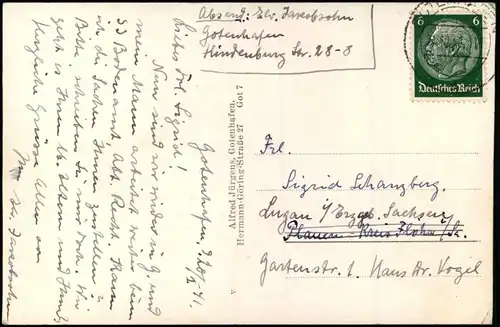 Absend: Elv. Jakobsohn
Gotenhafen
Hindenburg Str. 28-8
6 6
Deutsches Reich
Gotenhafen, 41.
Liebes Frl. Sigrid!
Nun sind wir wieder in G. und
mein Mann arbeitet weiter beim
SS Bodenamt Abt. Recht. Kann
ich die Sachen Ihnen zustellen?
Bitte schreiben Sie mir doch. Wie
geht es Ihnen lb. Eltern und
Herzliche Grüsse Allen von
Elv. Jakobsohn
Alfred Jürgens, Gotenhafen,
Hermann-Göring-Straße 27 Got 7
A
Frl.
Sigrid Schanzberg
Lugau i/Erzgb. Sachsen
Plauen - Kreis Flöha i/Sa.
Gartenstr. 1 Haus Dr. Vogel